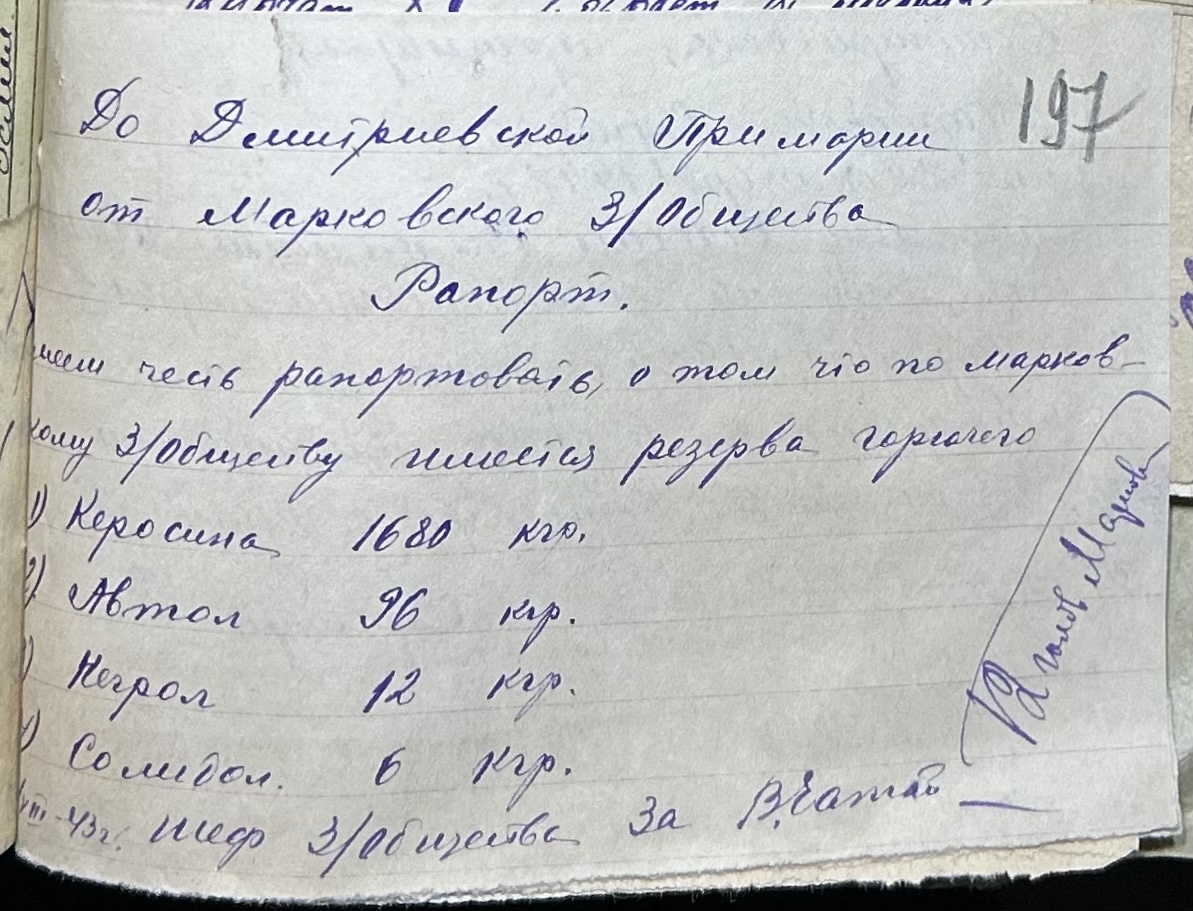 197
До Дмитриевской Примарии
от Марковского З/Общества
Рапорт.
честь рапортовать, о том что по Марков-
кому З/Обществу имеется резерва горючего
1) Керосина 1680 кгр.
2) Автол 96 кгр.
Негрол 12 кгр.
Солидол. 6 кгр.
43 г. Шеф З/Общества За